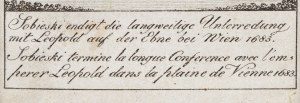 Sobieski endigt die langweilige Unterredung
mit Leopold auf der Ebne bei Wien 1683.
Sobieski termine la longue Conference avec l'em-
perer Leopold dans la plaine de Vienne 1683.